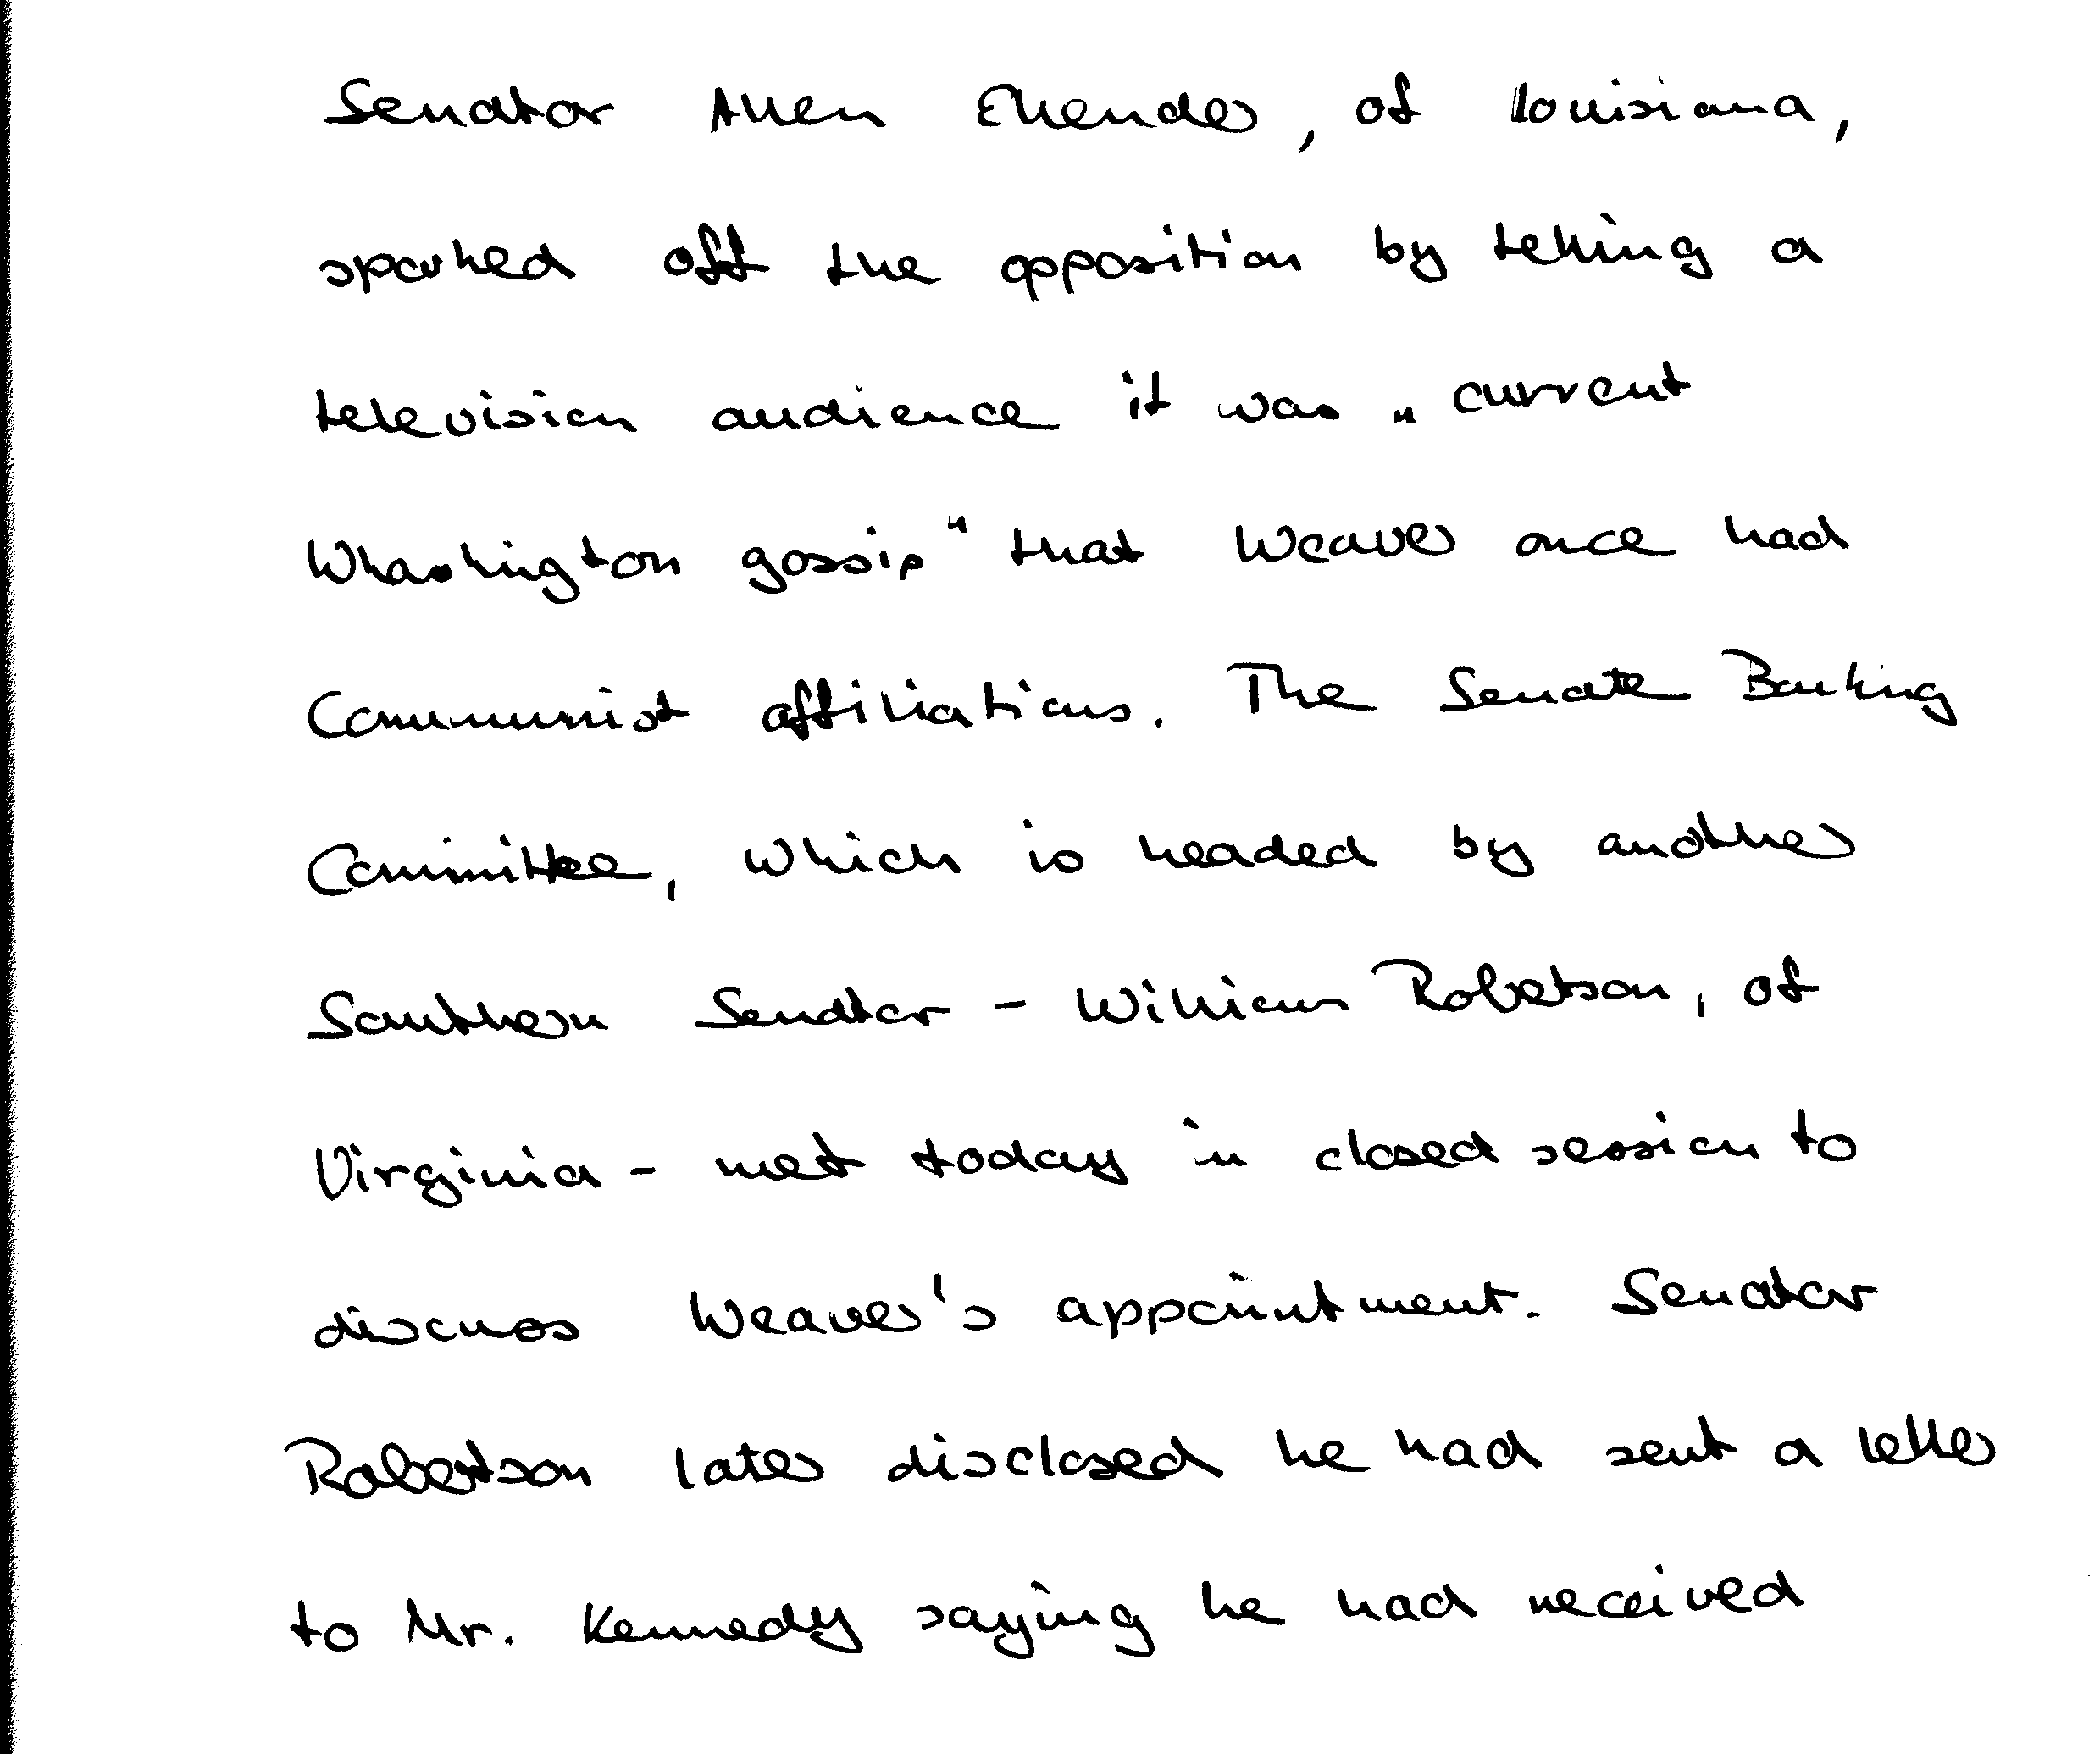 Senator Allen Ellender, of Louisiana,
sparked off the opposition by telling a
television audience it was "current
Whashington gossip" that Weaver once had
Communist affiliations. The Senate Banking
Committee, which is headed by another
Southern Senator - William Robertson, of
Virginia - met today in closed session to
discuss Weaver's appointment. Senator
Robertson later disclosed he had sent a letter
to Mr. Kennedy saying he had received